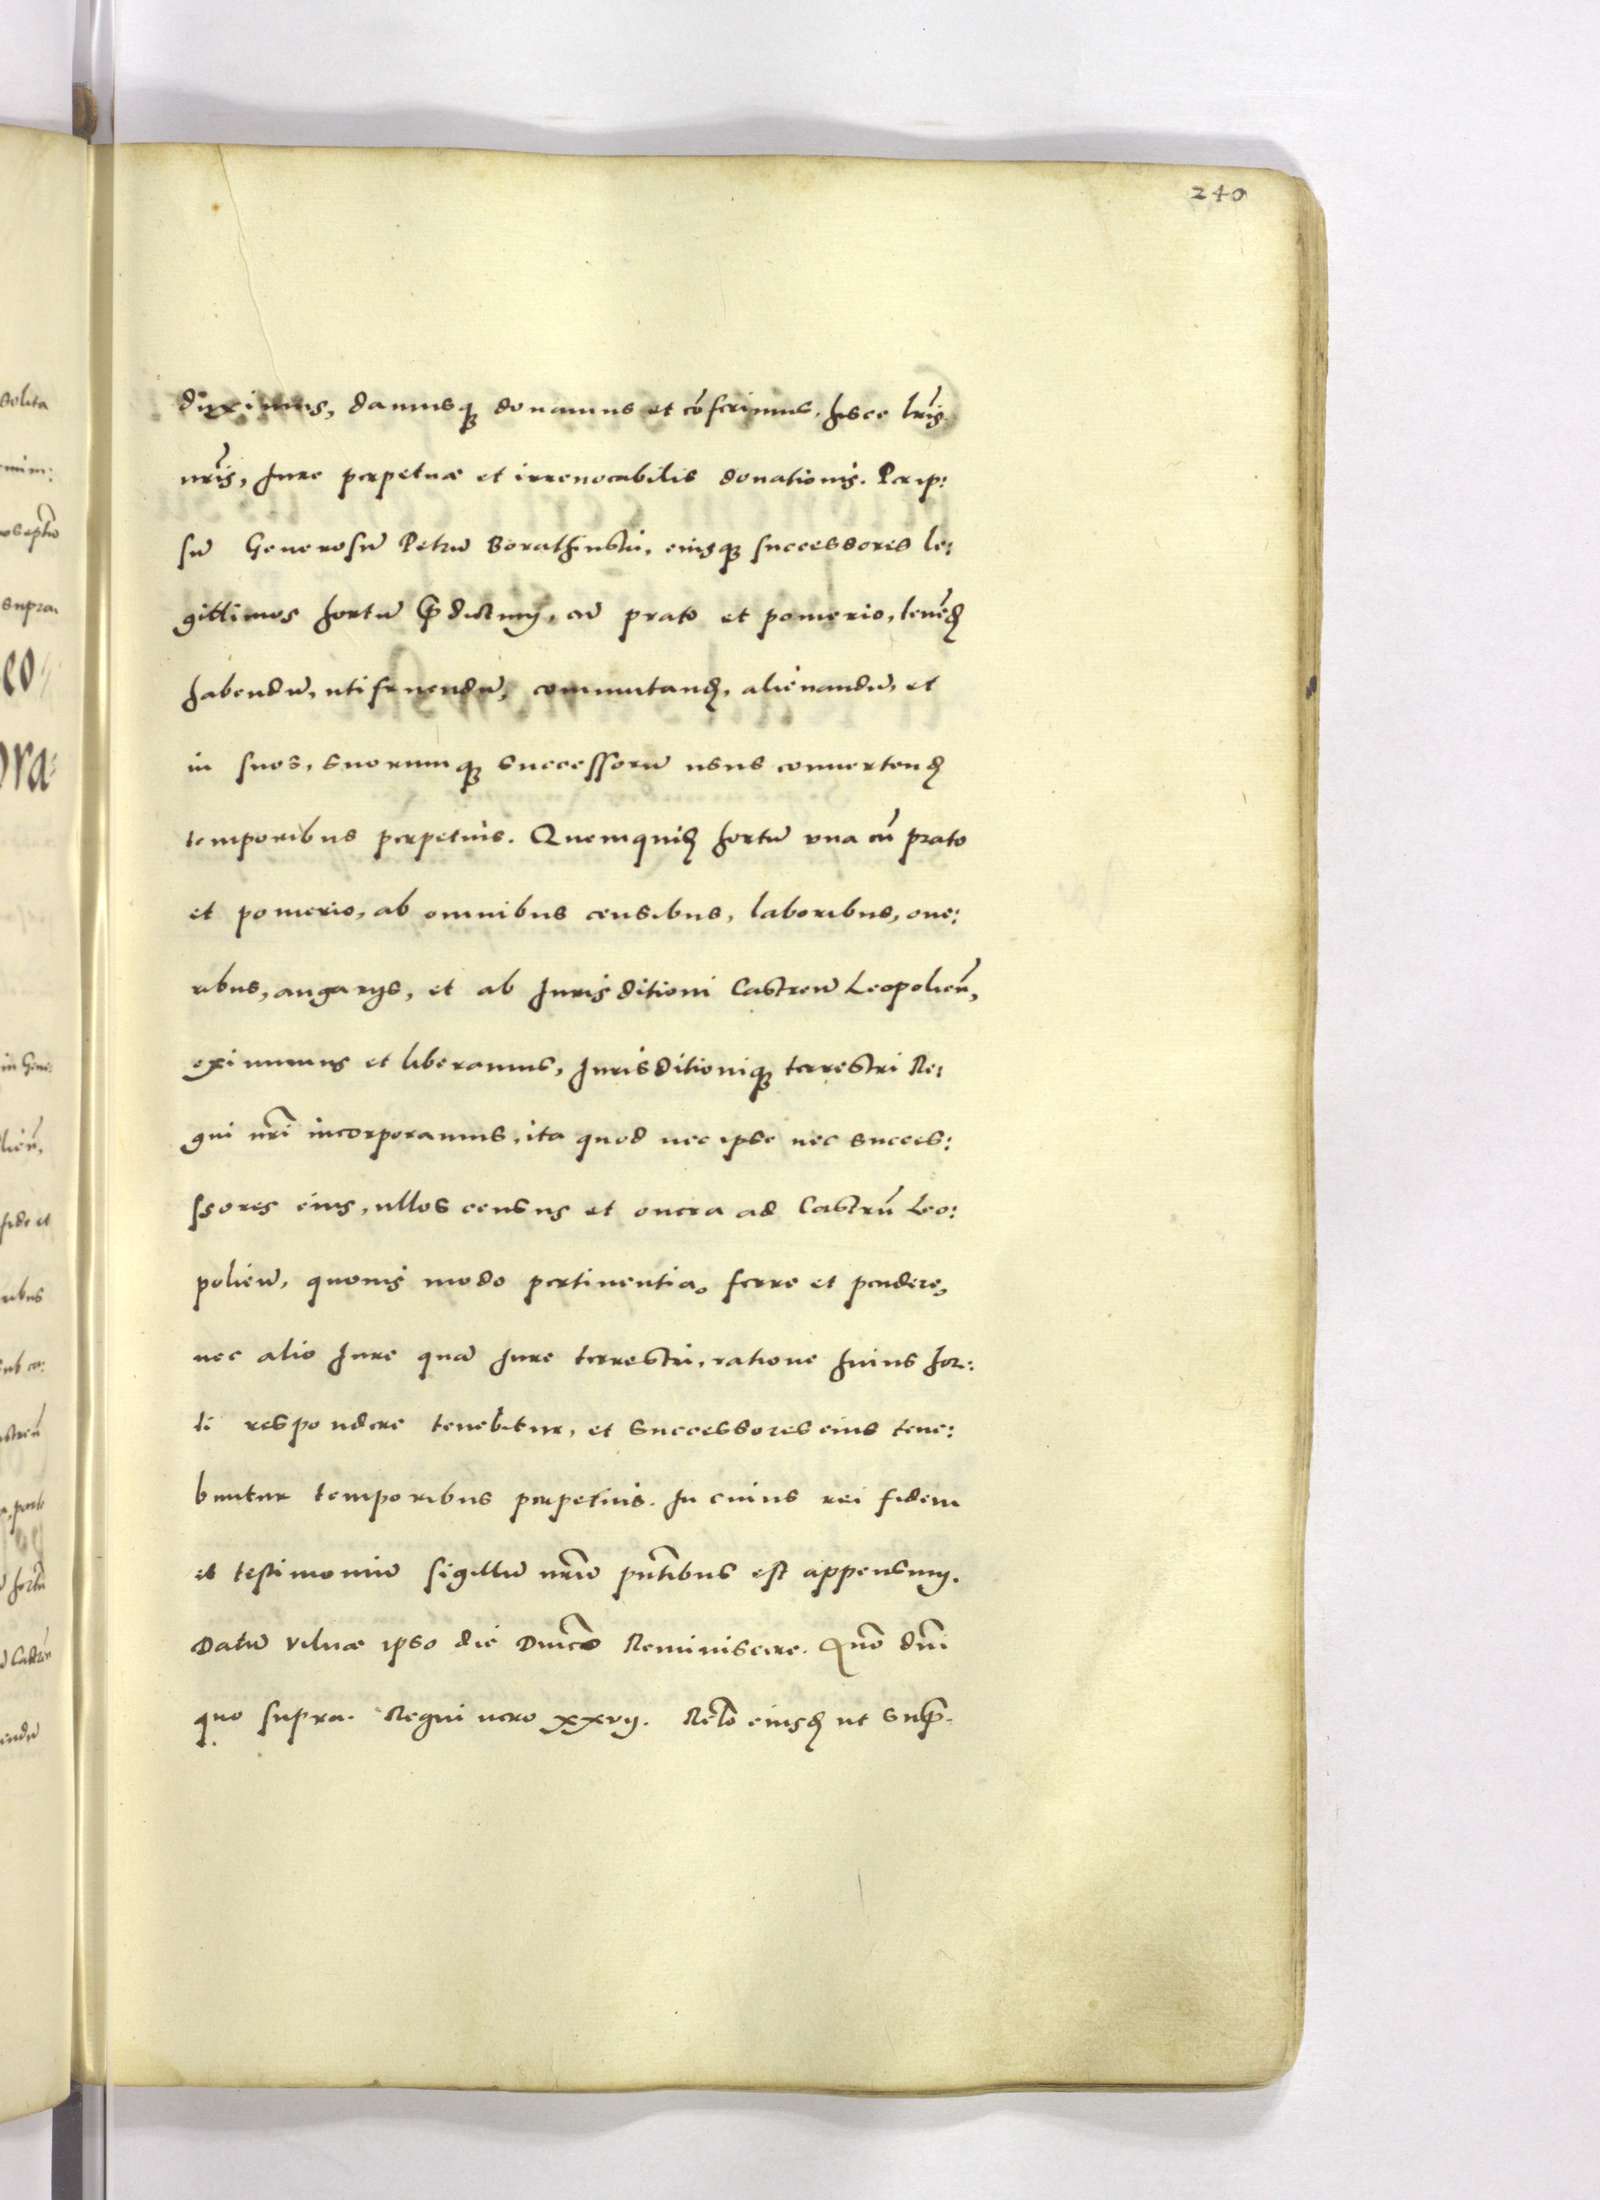 240
duximus, damusq; donamus et cōferimus. hisce lr̃is
nr̃is, Jure perpetuæ et irreuocabilis donationis. Per ip:
sū Generosū Petrū Borathinskū, eiusq; successores le:
gittimos hortū p̄dictum, cū prato et pomerio, tenēd
habendū, utifruendū, commutand, alienandū, et
in suos, suorumq; successorū usus conuertend
temporibus perpetuis. Quemquid hortū vna cū prato
et pomerio, ab omnibus censibus, laboribus, one:
ribus, angarijs, et ab Jurisditioni Castren̄ Leopolien̄,
eximimus et liberamus, Jurisditioniq; terrestri Re:
gni nr̃i incorporamus, ita quod nec ipse nec succes:
ssores eius, ullos census et onera ad Castrū Leo:
polien̄, quouis modo pertinentia, ferre et pendere,
nec alio Jure quā Jure terrestri, ratione huius hor:
ti respondere tenebitur, et successores eius tene:
buntur temporibus perpetuis. In cuius rei fidem
et testimoniū sigillū nr̃ū pn̄tibus est appensum.
Datū Vilnæ ipso die Dnico Reminiscere. Āno dn̄i
quo supra. Regni uero xxvij. Relō eiusd ut sup̄.